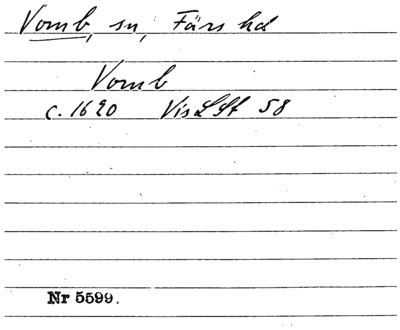 Vomb, sn, Färs hd
Vomb
c. 1620 VisLSt 58
Nr 5599.